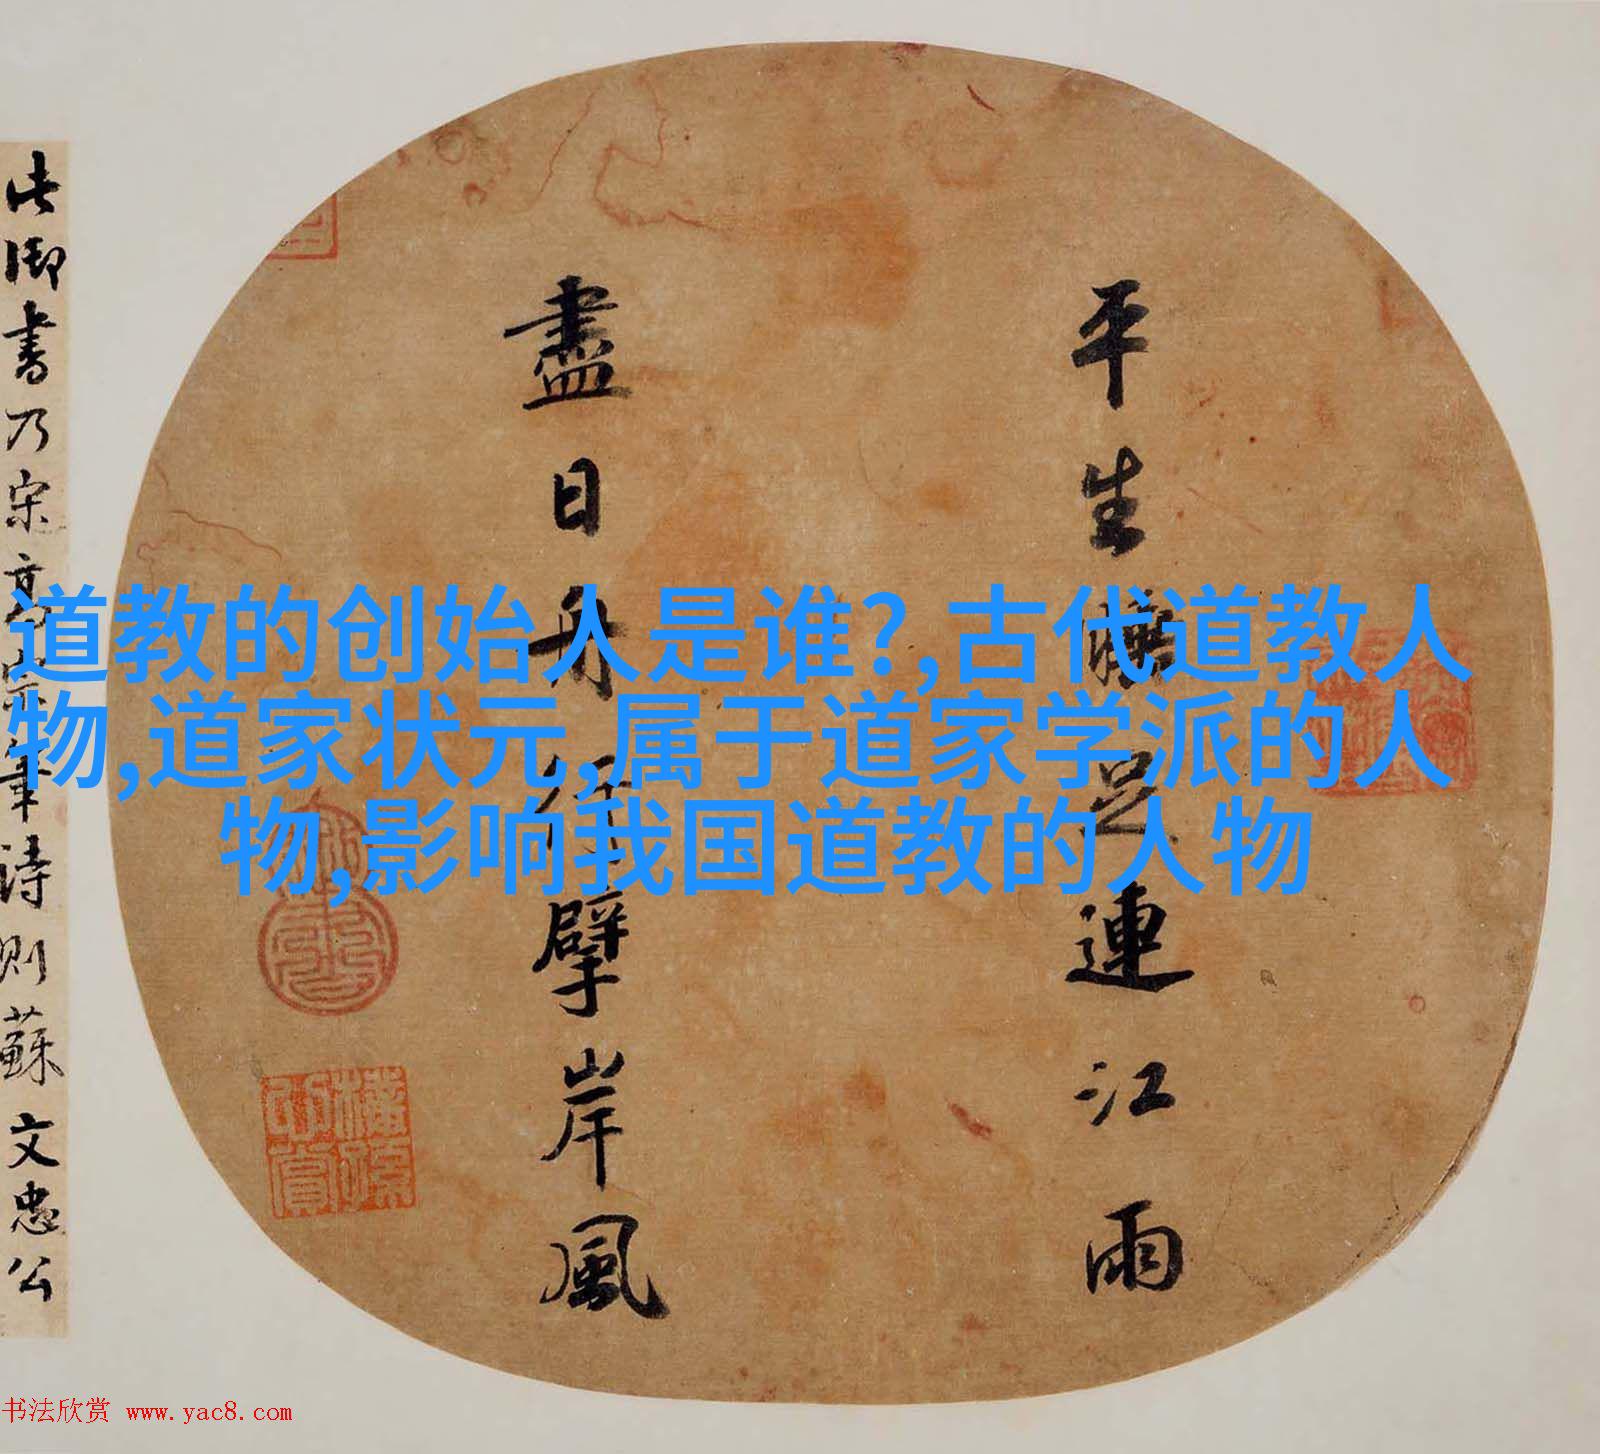 道教的创始人是谁?,古代道教人
物,道家状元,属于道家学派的人
物,影响我国道教的人物
平生睡足連江雨
盡日舟行擘岸風
此御書乃宋高宗筆詩則蘇文忠公
书法欣赏 www.yac8.com